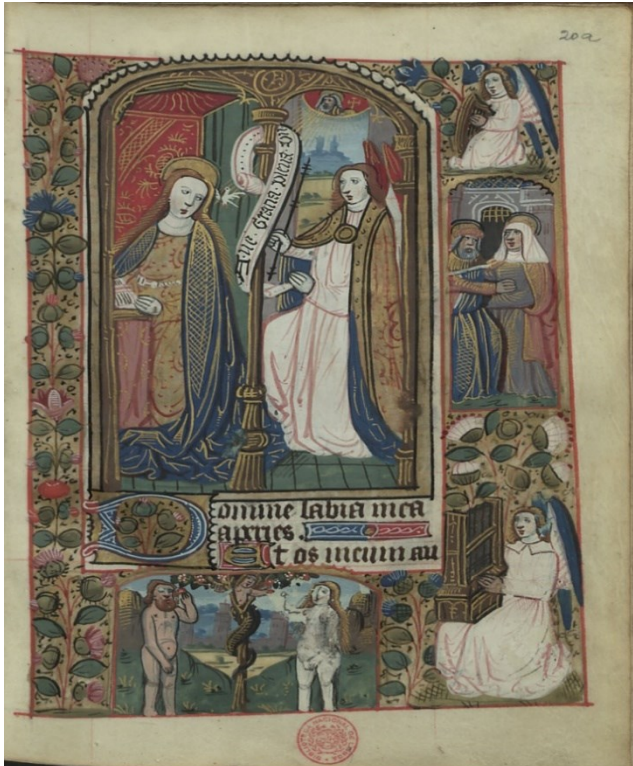 20a
Ave · Gracia · Plena · D
Domine labia mea
apries.
Et os meum an